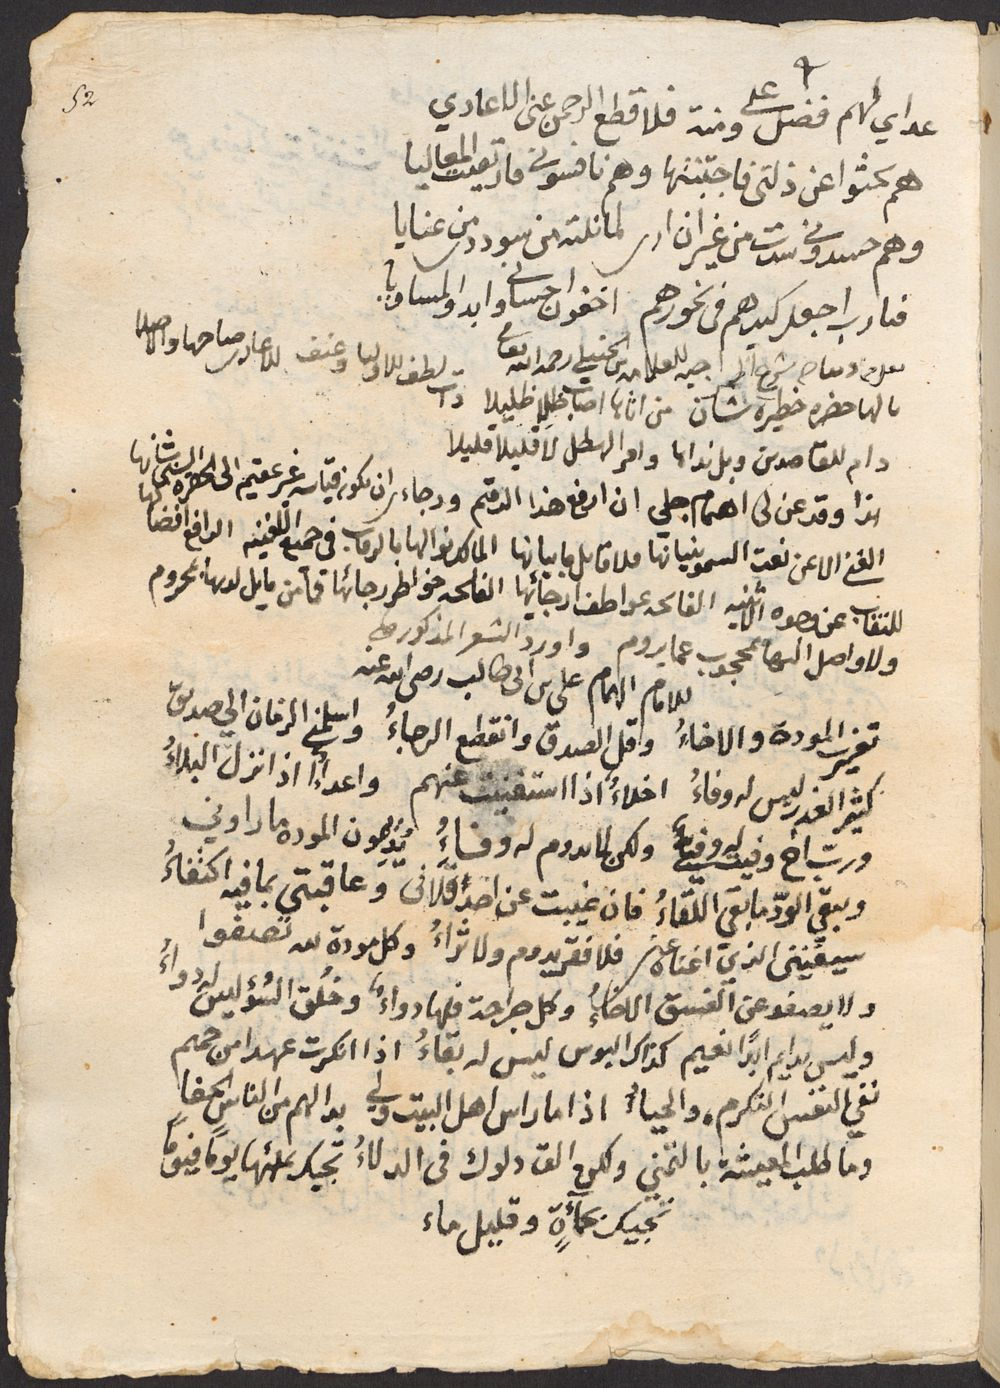 52
عداي لهم فضل علي ومنة فلا قطع الرحمن عني الاعادي
هم بحثوا عن ذلتي فاجتنبتها وهم نافسوني فارتقيت المعاليا
وهم حسدوني من غير ان ارى لما نلته من سودد من عنايا
فيارب اجعل كيدهم في نحورهم اخفوا احساني وابدوا لمساويا
للعلامه بن الحنبلي رحمه الله تعالى
يالها حضره خطيرة شان من اتاها اصاب ظلا ظليلا ذات لطف للاوليا وعنف للاعادي صباحها واصيلا
دام للقاصدين وبل نداها وامر الهطل لا قليلا قليلا
هذا وقد عن لى اهتمام جلي ان ارفع هذا الرقيم ورجاءى ان يكون قياسه غير عقيم الى الحضره السني شانها
الغنى الاعن نعت السمو بنيانها فلا قايل ما بيانها المالك نوالها بالرقاب في جميع الرافع افضالها
للنقاب عن وجوه الفايحه عواطف ارجائها الفاتحه خواطر رجائها فما من مايل لديها بمحروم
ولا واصل اليها بمحجوب عما يروم واورد الشعر المذكور
للامام الهمام علي بن ابى طالب رضى الله عنه
تغيرت المودة والاخاءُ وقل الصدق وانقطع الرجاءُ واسلمني الزمان الى صديق
كثير الغدر ليس له وفاءُ اخلاءُ اذا استغنيت عنهم واعداءُ اذا نزل البلاءُ
وربّ اخ وفيت له وفيٌّ ولكن لا يدوم له وفاءُ يُديمون المودة ما راوني
ويبقى الودّ ما بقى اللقاءُ فان غيبت عن احدٍ قلانى وعاقبني بما فيه اكتفاءُ
سيغنينى الذي اغناه عني فلا فقر يدوم ولا ثراءُ وكل مودة لله تصفوا
ولا يصفو عن الفسق الاخاءُ وكل جراحة فلها دواءُ وخُلق السُوءِ ليس له دواءُ
وليس بدايم ابدًا نعيم كذاك البوس ليس له بقاءُ اذا انكرت عهدا من حميم
نفي النفس التكرم والحياءُ اذا ما راس اهل البيت ولى بدا لهم من الناس الجفا
وما طلب المعيشة بالتمني ولكن الق دلوك في الدلاءُ تجيك بملئها يومًا فيومًا
تجيك بحمأةٍ وقليل ماء